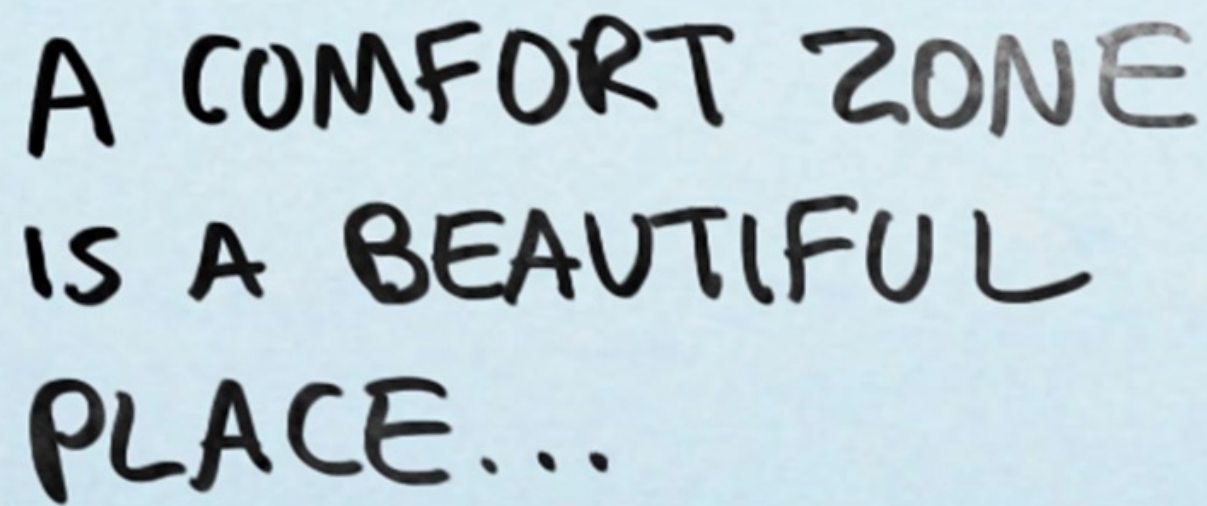 A COMFORT ZONE
IS A BEAUTIFUL
PLACE...